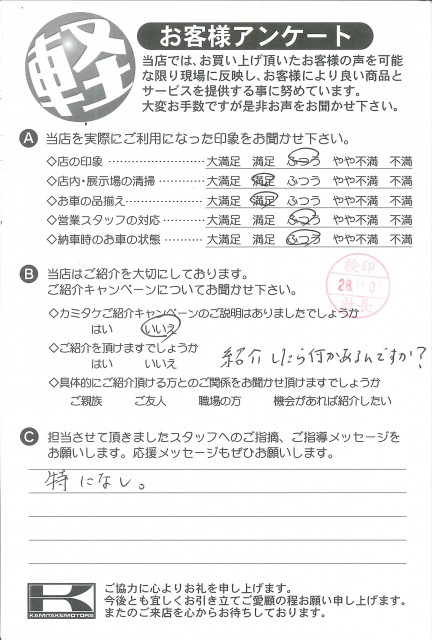 軽
お客様アンケート
当店では、お買い上げ頂いたお客様の声を可能
な限り現場に反映し、お客様により良い商品と
サービスを提供する事に努めています。
大変お手数ですが是非お声をお聞かせ下さい。
A 当店を実際にご利用になった印象をお聞かせ下さい。
◇店の印象 ……………… 大満足 満足 ふつう やや不満 不満
◇店内・展示場の清掃 ……… 大満足 満足 ふつう やや不満 不満
◇お車の品揃え …………… 大満足 満足 ふつう やや不満 不満
◇営業スタッフの対応 ……… 大満足 満足 ふつう やや不満 不満
◇納車時のお車の状態 ……… 大満足 満足 ふつう やや不満 不満
B 当店はご紹介を大切にしております。
ご紹介キャンペーンについてお聞かせ下さい。
検印
28.
社長
◇カミタケご紹介キャンペーンのご説明はありましたでしょうか
はい いいえ
◇ご紹介を頂けますでしょうか
はい いいえ
紹介したら何かあるんですか?
◇具体的にご紹介頂ける方とのご関係をお聞かせ頂けますでしょうか
ご親族 ご友人 職場の方 機会があれば紹介したい
C 担当させて頂きましたスタッフへのご指摘、ご指導メッセージを
お願いします。応援メッセージもぜひお願いします。
特になし。
K
KAMITAKEMOTORS
ご協力に心よりお礼を申し上げます。
今後とも宜しくお引き立てご愛顧の程お願い申し上げます。
またのご来店を心からお待ちしております。